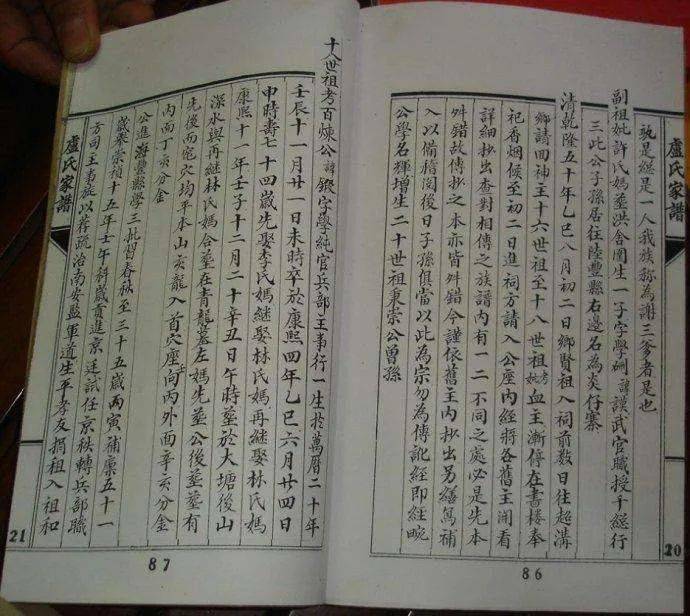 盧氏家譜
20
孰是總是一人我族称為謝三爹者是也
副祖妣許氏媽塟洪舍圍生一子字學 諱謨武官職授千總行
三此公子孫居住陸豐縣右邊名為炎仔寨
清乾隆五十年乙巳八月初二日鄉賢祖入祠前数日往赴溝
鄉請回神主十六世祖至十八世祖考妣血主漸停在書楼奉
祀香烟候至初二日進祠方請入公座內經將各舊主開看
詳細抄出查對相傳之族譜內有一二不同之處必是先本
舛錯故傳抄之本亦皆舛錯今謹依舊主內抄出另繕篤補
入以備稽閱後日子孫俱當以此為宗勿為傳訛經即經畹
公學名揮增生二十世祖東崇公曾孫
86
十八世祖考百煉公諱鏗字學純官兵部主事行一生於萬曆二十年
壬辰十一月廿一日未時卒於康熙四年乙巳六月廿四日
申時壽七十四歲先娶李氏媽継娶林氏媽再継娶林氏媽
康熙十一年壬子十二月二十辛丑日午時塟於大塘後山
深水與再継林氏媽合塟在青龍墓左媽先塟公後塟塟有
先後而寵穴均平本山亥龍入首穴座 向內外面辛亥分金
內面丁亥分金
公進海豐縣學三 習春秋至三十五歲丙寅補廪五十一
歲奉崇禎十五年壬午 歲貢進京廷試任京秩轉兵部職
方司主事旋以荐疏治南安監軍道生平孝友捐租入祖和
盧氏家譜
21
87